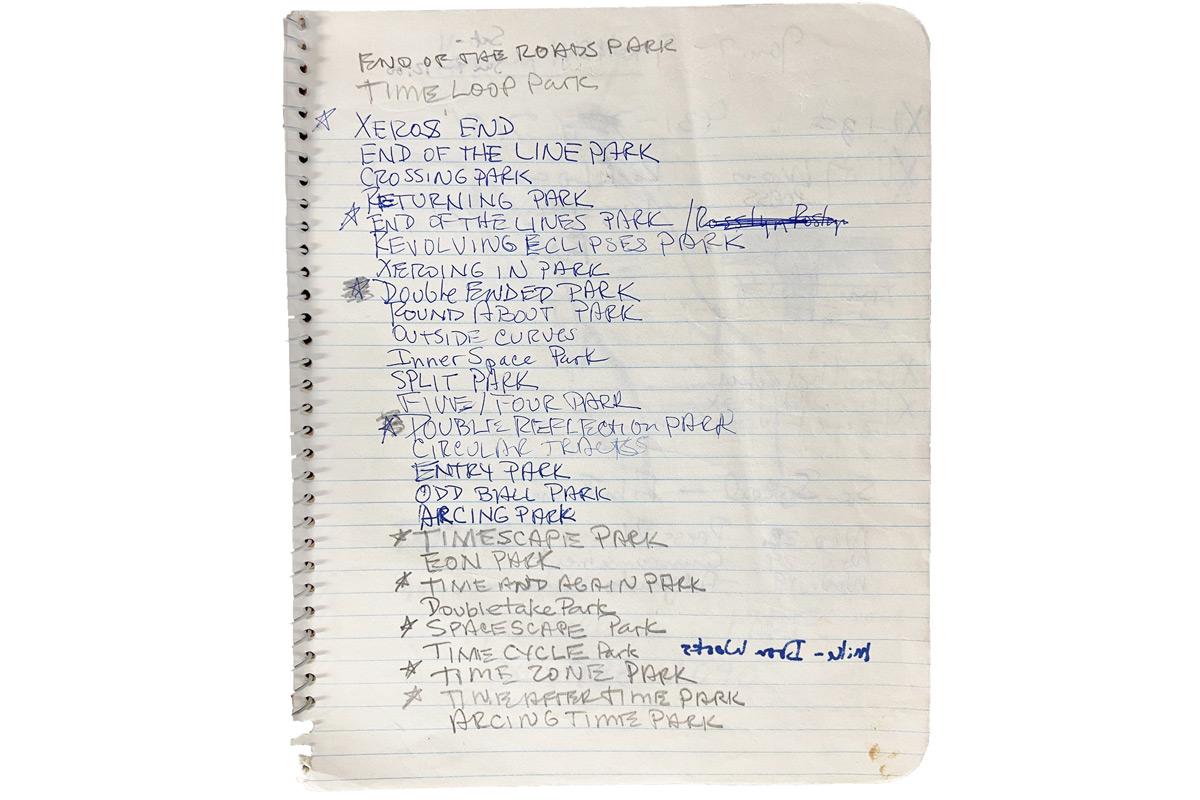 END OF THE ROADS PARK
TIME LOOP PARK
XEROS END
END OF THE LINE PARK
CROSSING PARK
RETURNING PARK
END OF THE LINES PARK / Rosslyn
REVOLVING ECLIPSES PARK
XEROING IN PARK
Double ENDED PARK
ROUND ABOUT PARK
OUTSIDE CURVES
Inner Space Park
SPLIT PARK
FIVE / FOUR PARK
DOUBLE REFLECTION PARK
CIRCULAR TRACKSS
ENTRY PARK
ODD BALL PARK
ARCING PARK
TIMESCAPE PARK
EON PARK
TIME AND AGAIN PARK
Doubletake Park
SPACESCAPE Park
TIME CYCLE Park Mike - Iron Works
TIME ZONE PARK
TIME AFTER TIME PARK
ARCING TIME PARK